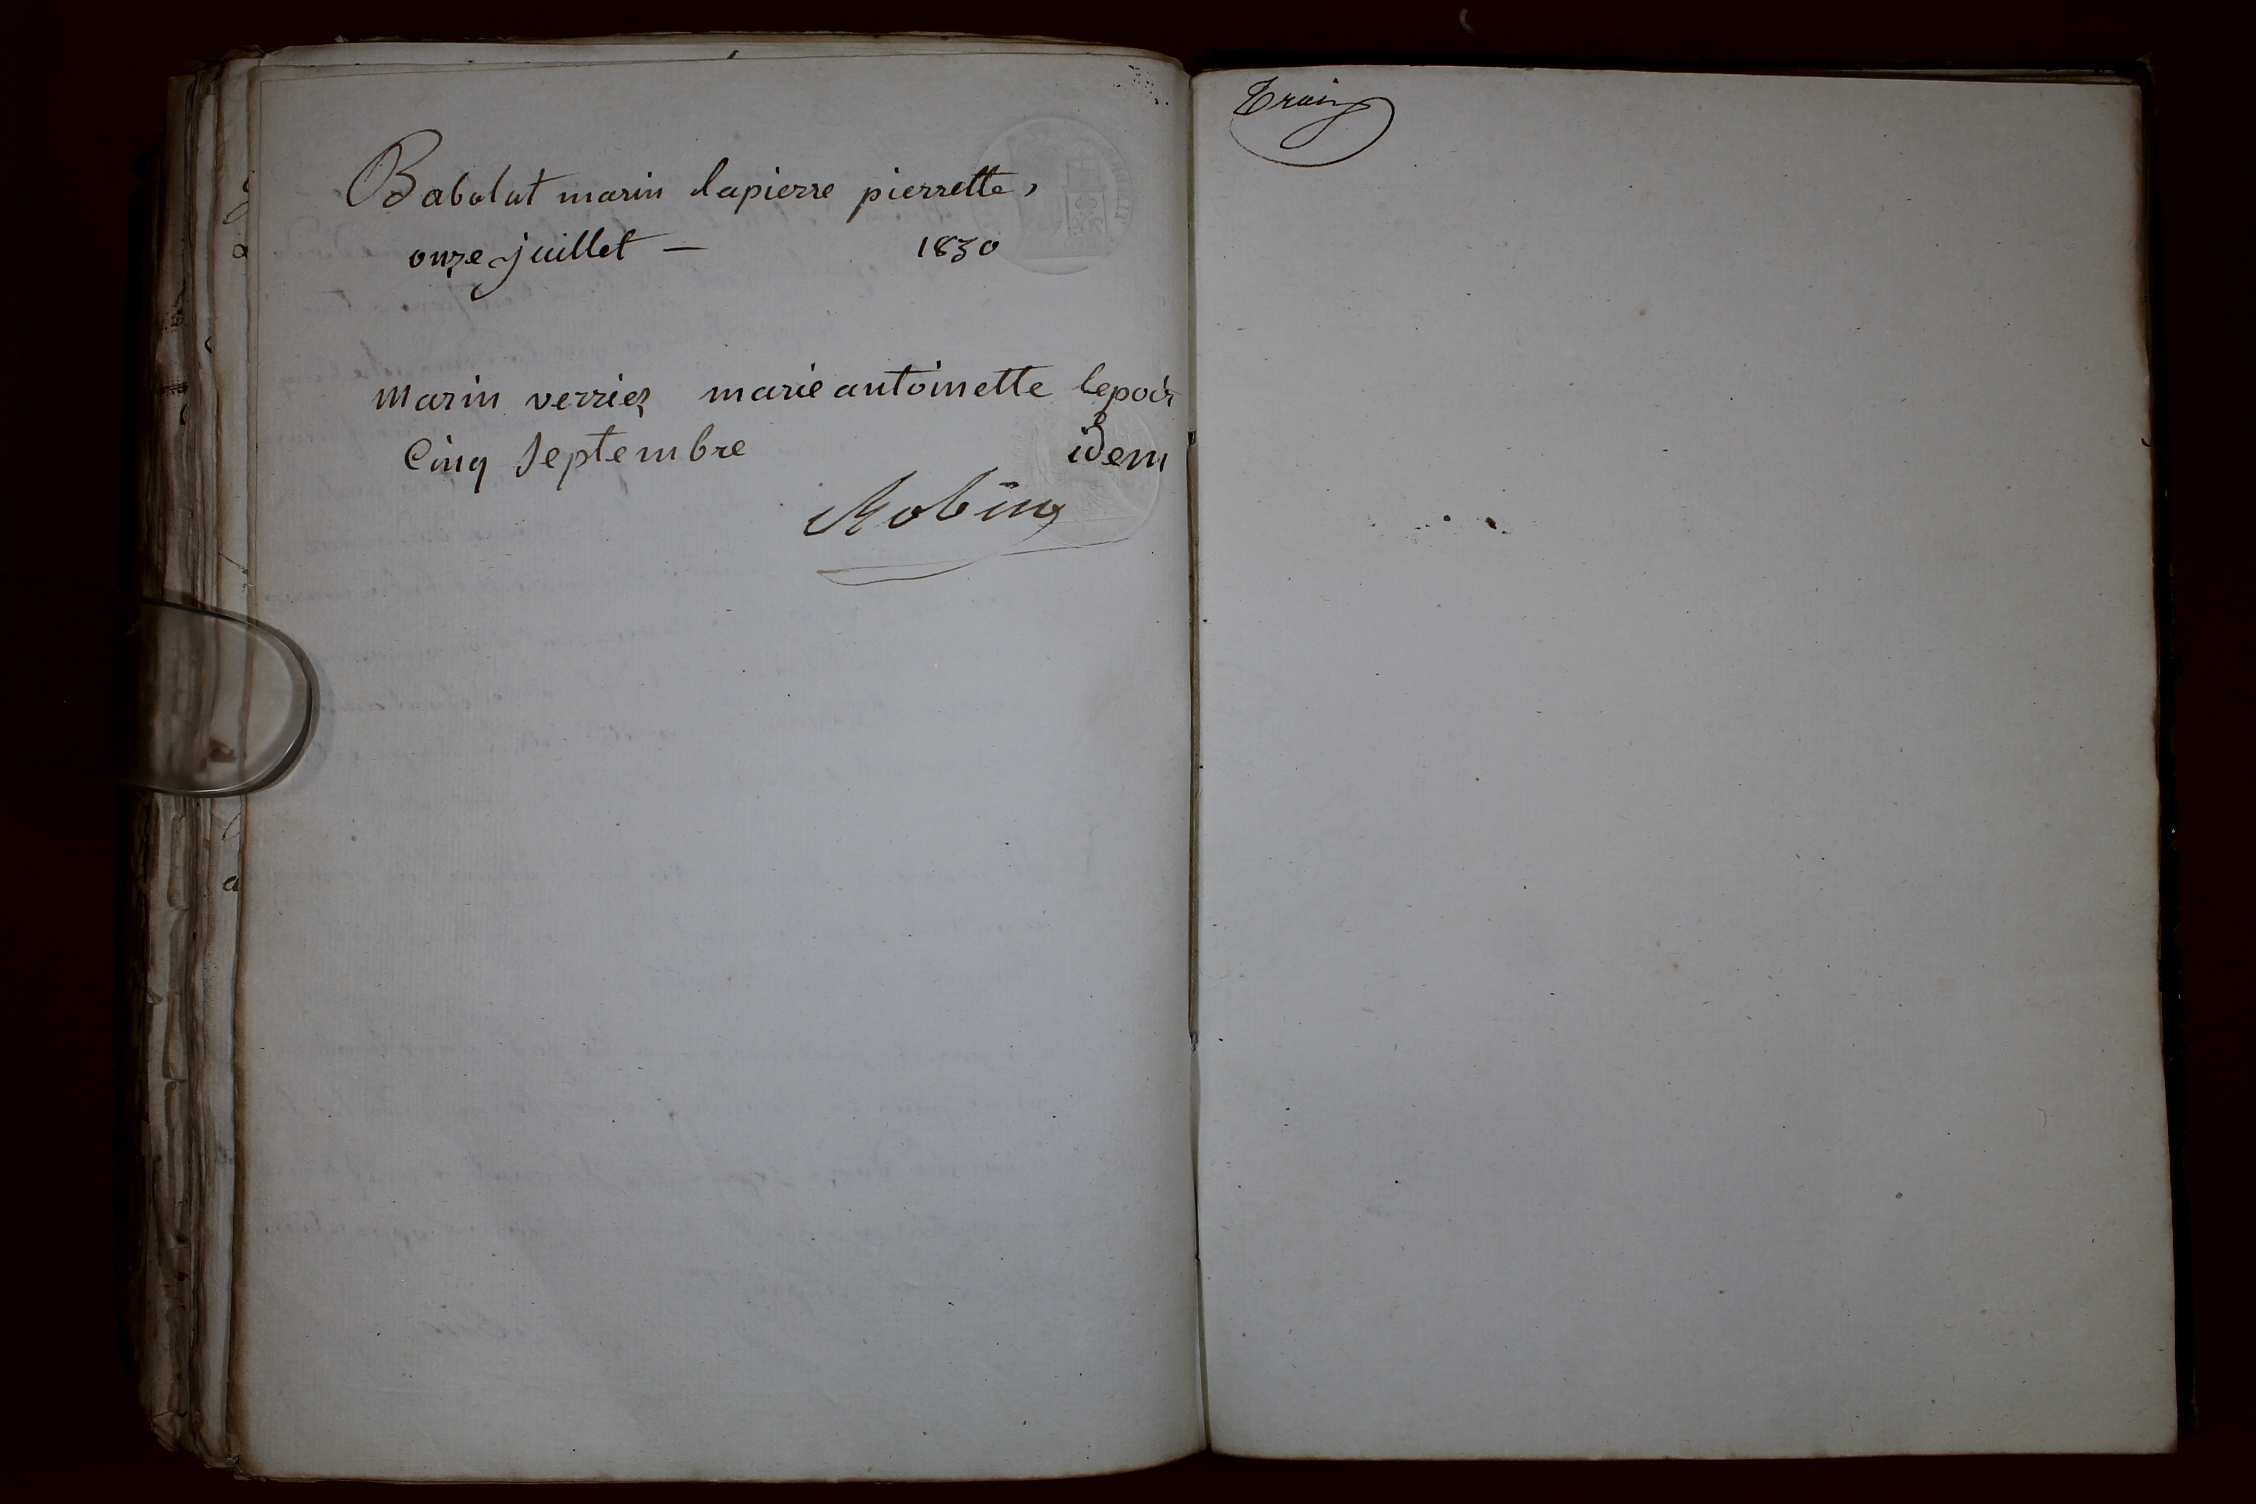 Babolat marin lapierre pierrette,
onze juillet — 1830
Marin verrier marie antoinette lepoix
Cinq Septembre idem
Robin